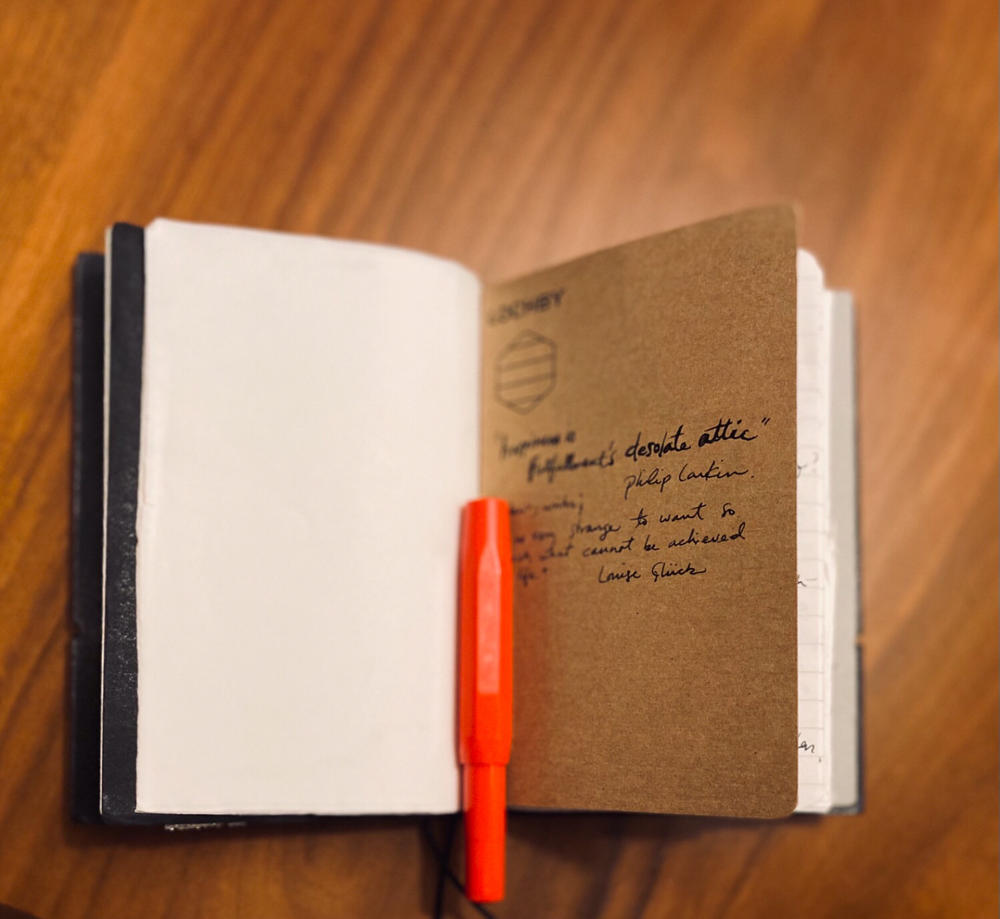 LOCHBY
"Happiness is
Fulfillment's desolate attic"
Philip Larkin.
very strange to want so
what cannot be achieved
life."
Louise Glück